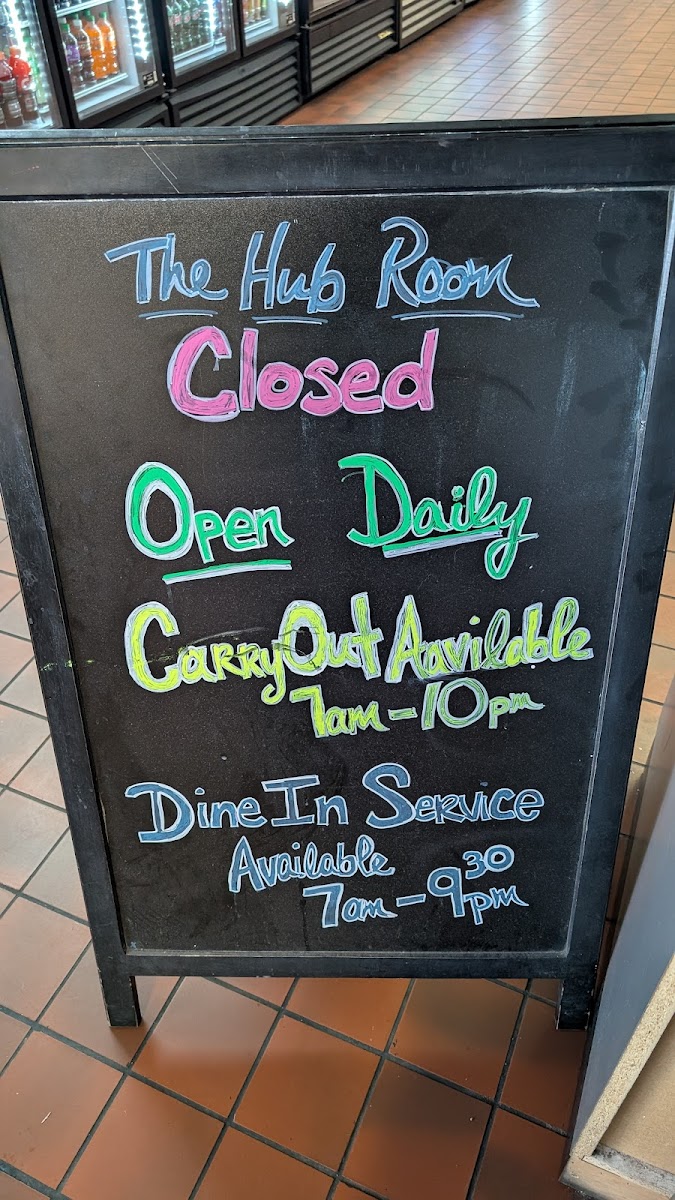 The Hub Room
Closed
Open Daily
Carry Out Aavilable
7am - 10pm
Dine In Service
Available
7am - 9 30 pm